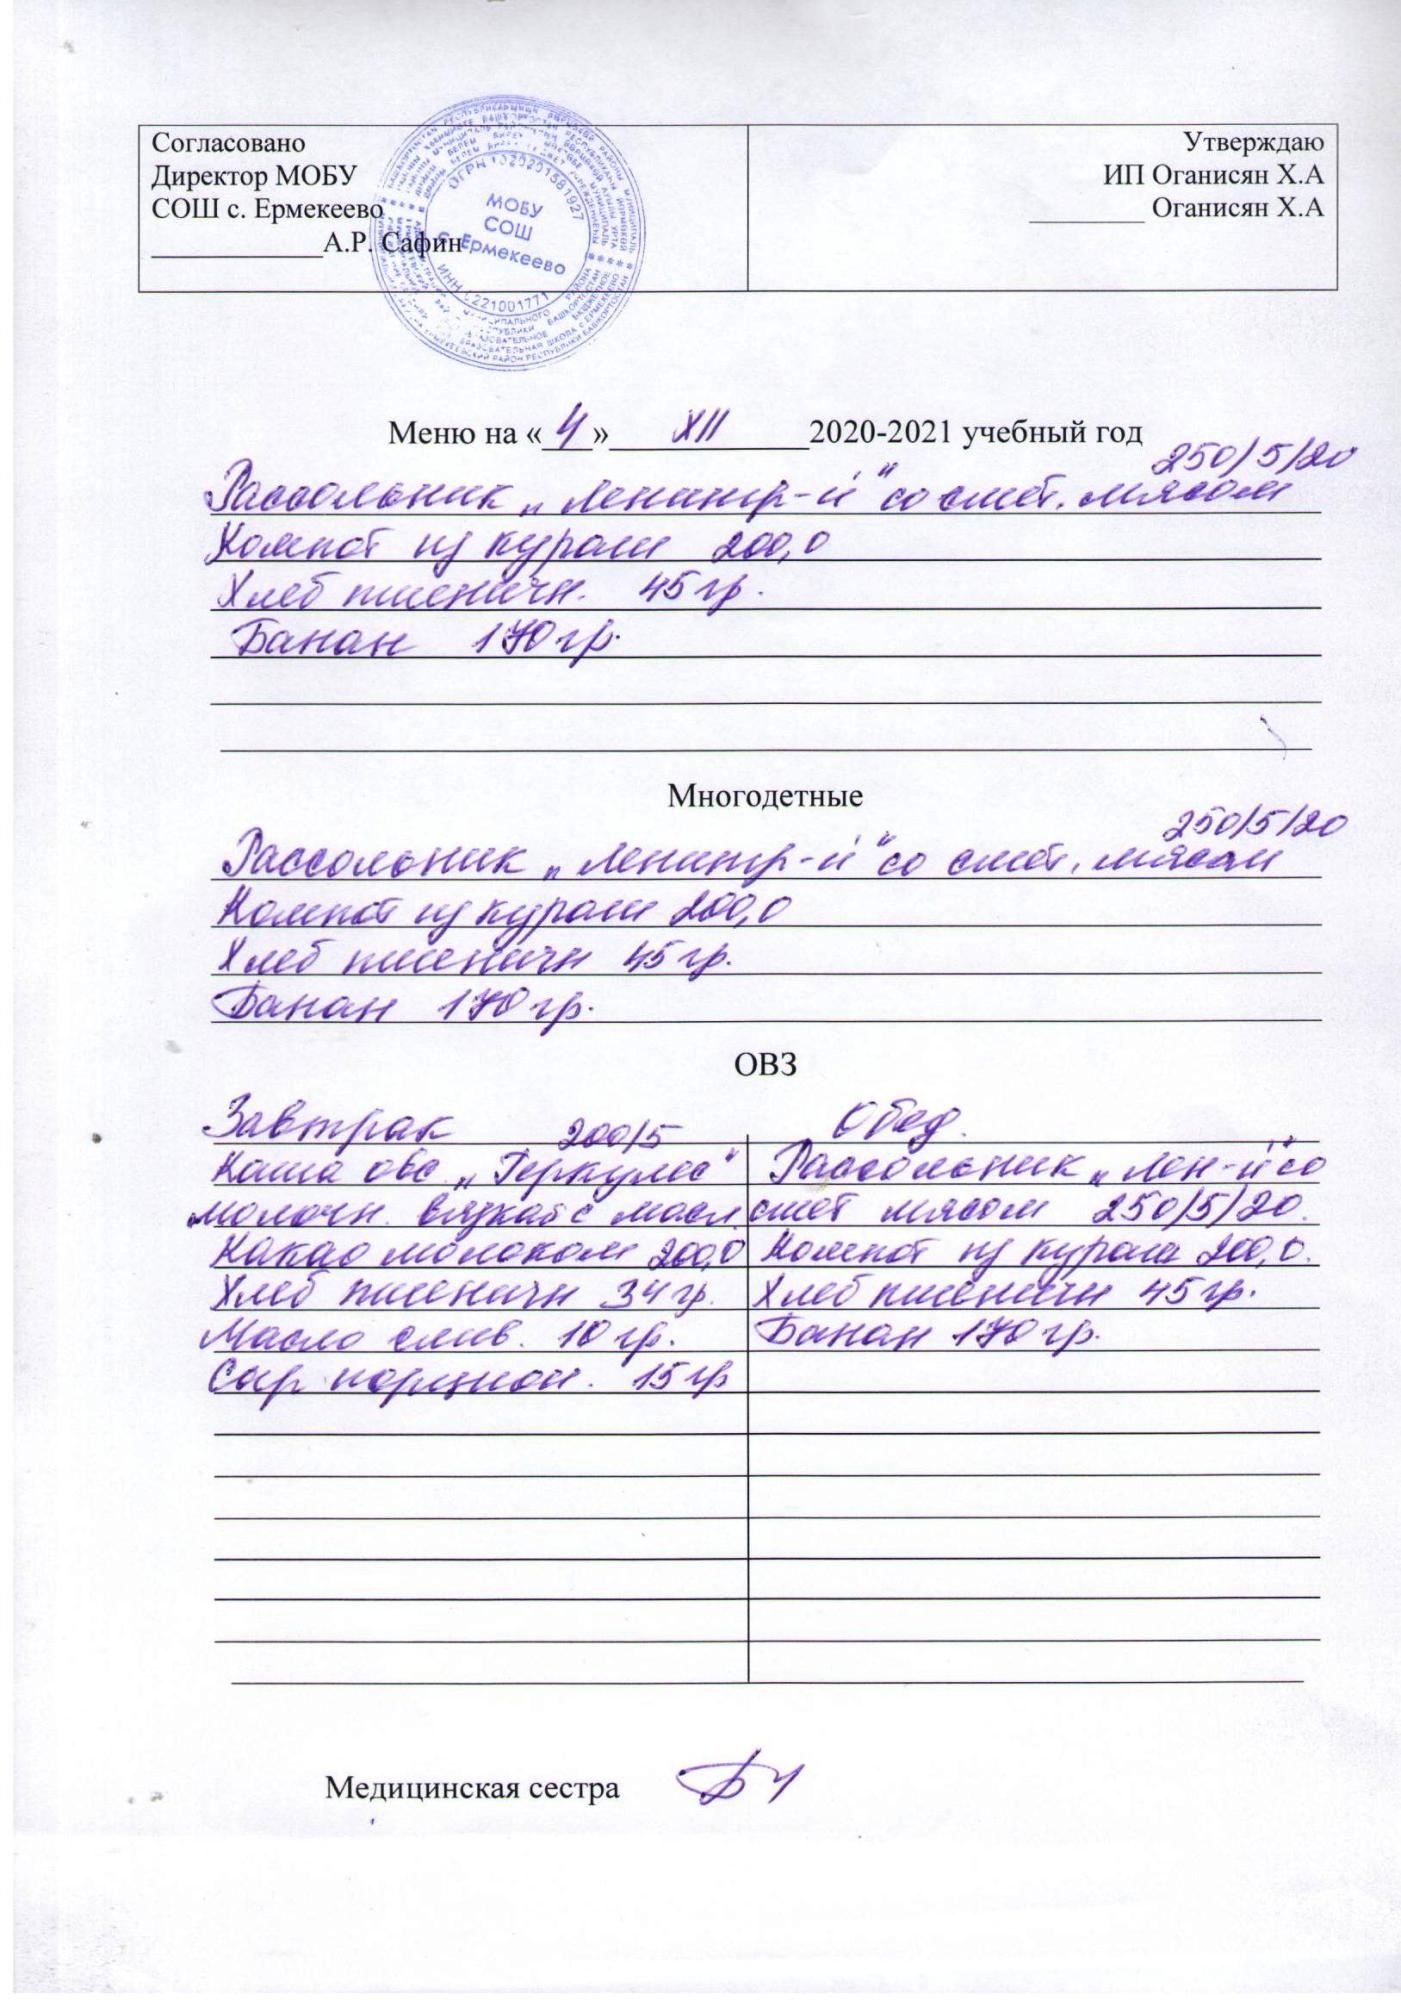 Согласовано
Директор МОБУ
СОШ с. Ермекеево
____________А.Р. Сафин
Утверждаю
ИП Оганисян Х.А
________ Оганисян Х.А
ОГРН 1020201581927
МОБУ
СОШ
с. Ермекеево
ИНН 0221001771
Меню на «4» XII 2020-2021 учебный год
250/5/20
Рассольник „Ленингр-й" со смет. мясом
Компот из кураги 200,0
Хлеб пшеничн. 45 гр.
Банан 170 гр.
Многодетные
250/5/20
Рассольник „Ленингр-й" со смет, мясом
Компот из кураги 200,0
Хлеб пшеничн 45 гр.
Банан 170 гр.
ОВЗ
Завтрак 200/5
Каша овс. „Геркулес"
молочн. вязкая с масл.
Какао молоком 200,0
Хлеб пшеничн 34 гр.
Масло слив. 10 гр.
Сыр порцион. 15 гр
Обед.
Рассольник „Лен-й" со
смет мясом 250/5/20.
Компот из кураги 200,0.
Хлеб пшеничн 45 гр.
Банан 170 гр.
Медицинская сестра